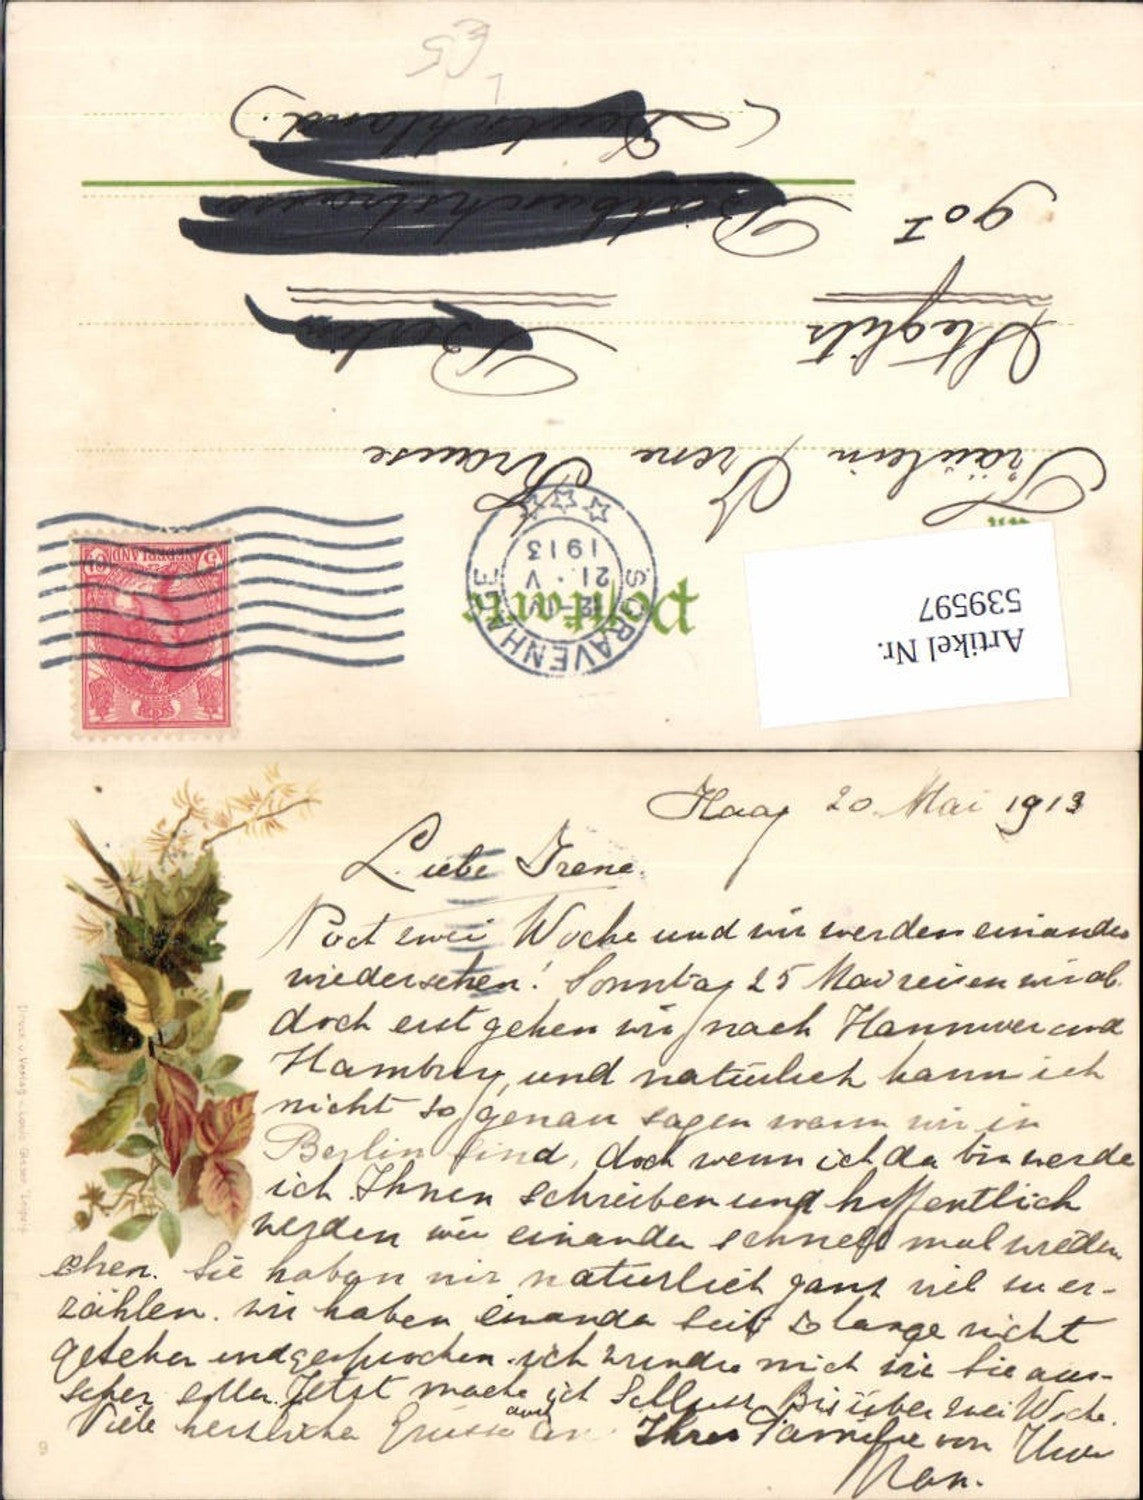 53
Postkarte
An
Fräulein Irene Krause
Steglitz Berlin
90 I
(Deutschland.)
Artikel Nr.
539597
S GRAVENHAGE
21. V
1913
NEDERLAND
5
Haag 20. Mai 1913
Liebe Irene.
Noch zwei Woche und wir werden einander
wiedersehen! Sonntag 25 Mai reisen wir ab.
doch erst gehen wir nach Hannover und
Hamburg, und natürlich kann ich
nicht so genau sagen wann wir in
Berlin sind, doch wenn ich da bin werde
ich Ihnen schreiben und hoffentlich
werden wir einander schnell mal wieder
sehen. Sie haben mir natürlich ganz viel zu er-
zählen. wir haben einander seit so lange nicht
gesehen und gesprochen. ich wundre mich wie Sie aus-
sehen. Jetzt mache ich Schluss. Bis über zwei Woche.
Viele herzliche Grüsse auch an Ihrer Familie von Ihre
Druck u. Verlag
9